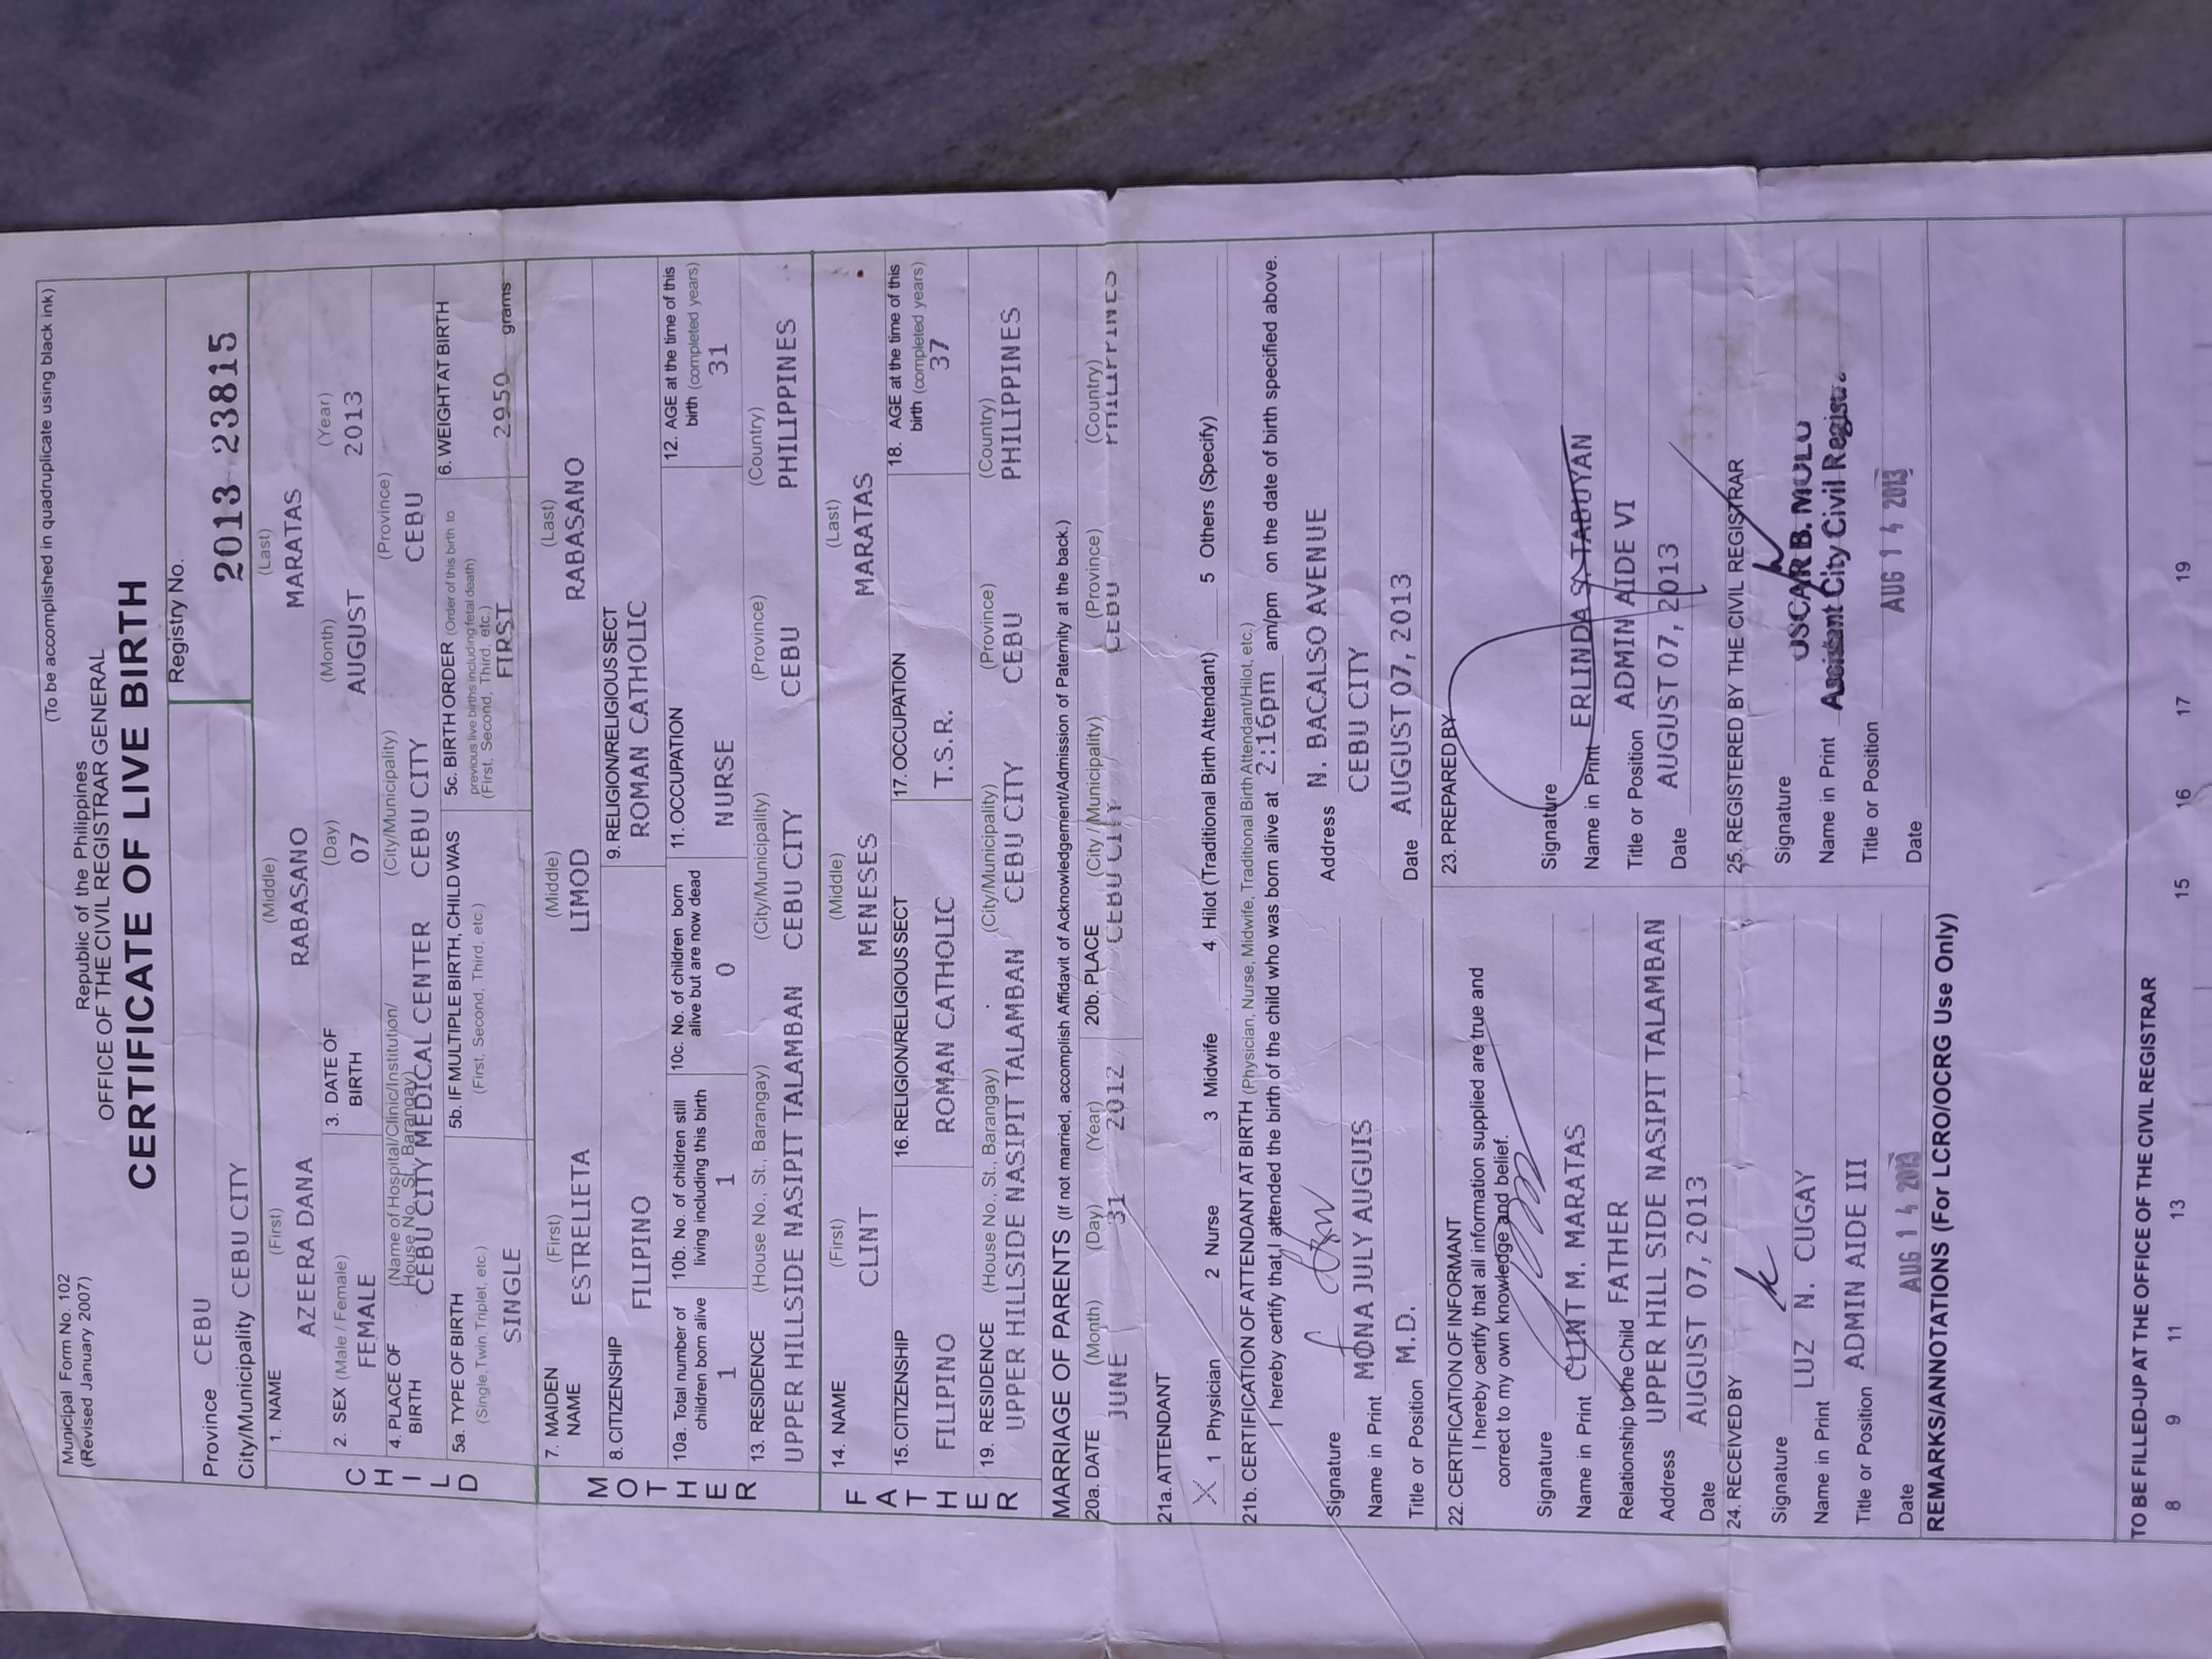 Municipal Form No. 102
(Revised January 2007)
(To be accomplished in quadruplicate using black ink)
Republic of the Philippines
OFFICE OF THE CIVIL REGISTRAR GENERAL
CERTIFICATE OF LIVE BIRTH
Province CEBU
City/Municipality CEBU CITY
Registry No.
2013 23815
CHILD
1. NAME (First) (Middle) (Last)
AZEERA DANA RABASANO MARATAS
2. SEX (Male / Female)
FEMALE
3. DATE OF BIRTH (Day) (Month) (Year)
07 AUGUST 2013
4. PLACE OF BIRTH (Name of Hospital/Clinic/Institution/ House No., St., Barangay) (City/Municipality) (Province)
CEBU CITY MEDICAL CENTER CEBU CITY CEBU
5a. TYPE OF BIRTH
(Single, Twin, Triplet, etc.)
SINGLE
5b. IF MULTIPLE BIRTH, CHILD WAS
(First, Second, Third, etc.)
5c. BIRTH ORDER (Order of this birth to previous live births including fetal death)
(First, Second, Third, etc.)
FIRST
6. WEIGHT AT BIRTH
2950 grams
MOTHER
7. MAIDEN NAME (First) (Middle) (Last)
ESTRELIETA LIMOD RABASANO
8. CITIZENSHIP
FILIPINO
9. RELIGION/RELIGIOUS SECT
ROMAN CATHOLIC
10a. Total number of children born alive
1
10b. No. of children still living including this birth
1
10c. No. of children born alive but are now dead
0
11. OCCUPATION
NURSE
12. AGE at the time of this birth (completed years)
31
13. RESIDENCE (House No., St., Barangay) (City/Municipality) (Province) (Country)
UPPER HILLSIDE NASIPIT TALAMBAN CEBU CITY CEBU PHILIPPINES
FATHER
14. NAME (First) (Middle) (Last)
CLINT MENESES MARATAS
15. CITIZENSHIP
FILIPINO
16. RELIGION/RELIGIOUS SECT
ROMAN CATHOLIC
17. OCCUPATION
T.S.R.
18. AGE at the time of this birth (completed years)
37
19. RESIDENCE (House No., St., Barangay) (City/Municipality) (Province) (Country)
UPPER HILLSIDE NASIPIT TALAMBAN CEBU CITY CEBU PHILIPPINES
MARRIAGE OF PARENTS (If not married, accomplish Affidavit of Acknowledgement/Admission of Paternity at the back.)
20a. DATE (Month) (Day) (Year)
JUNE 31 2012
20b. PLACE (City / Municipality) (Province) (Country)
CEBU CITY CEBU PHILIPPINES
21a. ATTENDANT
X 1 Physician 2 Nurse 3 Midwife 4 Hilot (Traditional Birth Attendant) 5 Others (Specify)
21b. CERTIFICATION OF ATTENDANT AT BIRTH (Physician, Nurse, Midwife, Traditional Birth Attendant/Hilot, etc.)
I hereby certify that I attended the birth of the child who was born alive at 2:16pm am/pm on the date of birth specified above.
Signature
Name in Print MONA JULY AUGUIS
Title or Position M.D.
Address N. BACALSO AVENUE
CEBU CITY
Date AUGUST 07, 2013
22. CERTIFICATION OF INFORMANT
I hereby certify that all information supplied are true and
correct to my own knowledge and belief.
Signature
Name in Print CLINT M. MARATAS
Relationship to the Child FATHER
Address UPPER HILL SIDE NASIPIT TALAMBAN
Date AUGUST 07, 2013
23. PREPARED BY
Signature
Name in Print ERLINDA S. TABUYAN
Title or Position ADMIN AIDE VI
Date AUGUST 07, 2013
24. RECEIVED BY
Signature
Name in Print LUZ N. CUGAY
Title or Position ADMIN AIDE III
Date AUG 14 2013
25. REGISTERED BY THE CIVIL REGISTRAR
Signature
Name in Print OSCAR B. MOLO
Title or Position Assistant City Civil Registrar
Date AUG 14 2013
REMARKS/ANNOTATIONS (For LCRO/OCRG Use Only)
TO BE FILLED-UP AT THE OFFICE OF THE CIVIL REGISTRAR
8 9 11 13 15 16 17 19